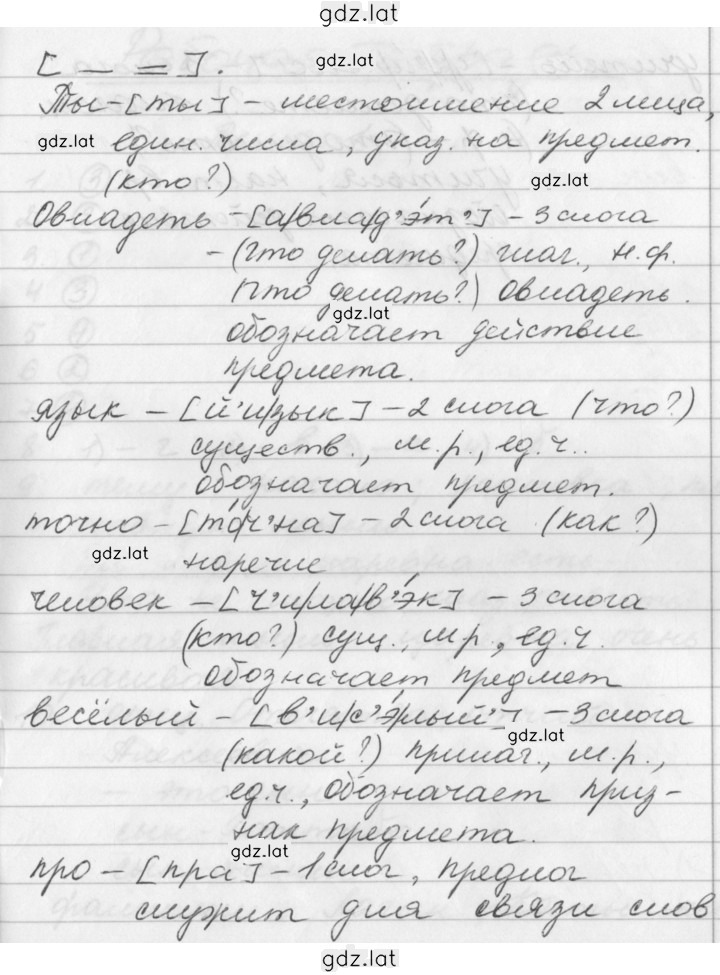 gdz.lat
[ _ = ].
gdz.lat
Ты-[ты] - местоимение 2 лица,
gdz.lat един. числа, указ. на предмет.
(кто?)
gdz.lat
Овладеть -[а/вла/д'э́т'] - 3 слога
- (что делать?) глаг., н.ф.
(что делать?) овладеть.
gdz.lat
обозначает действие
предмета.
язык - [й'и/зык] - 2 слога (что?)
существ., м.р., ед.ч..
обозначает предмет.
точно - [то́/ч'на] - 2 слога (как?)
gdz.lat
наречие
человек - [ч'и/ла/в'э́к] - 3 слога
(кто?) сущ., м.р., ед.ч.
обозначает предмет
весёлый - [в'и/с'э́/лый'] - 3 слога
gdz.lat
(какой?) прилаг., м.р.,
ед.ч., обозначает приз-
нак предмета.
gdz.lat
про - [пра] - 1 слог, предлог
служит для связи слов
gdz.lat